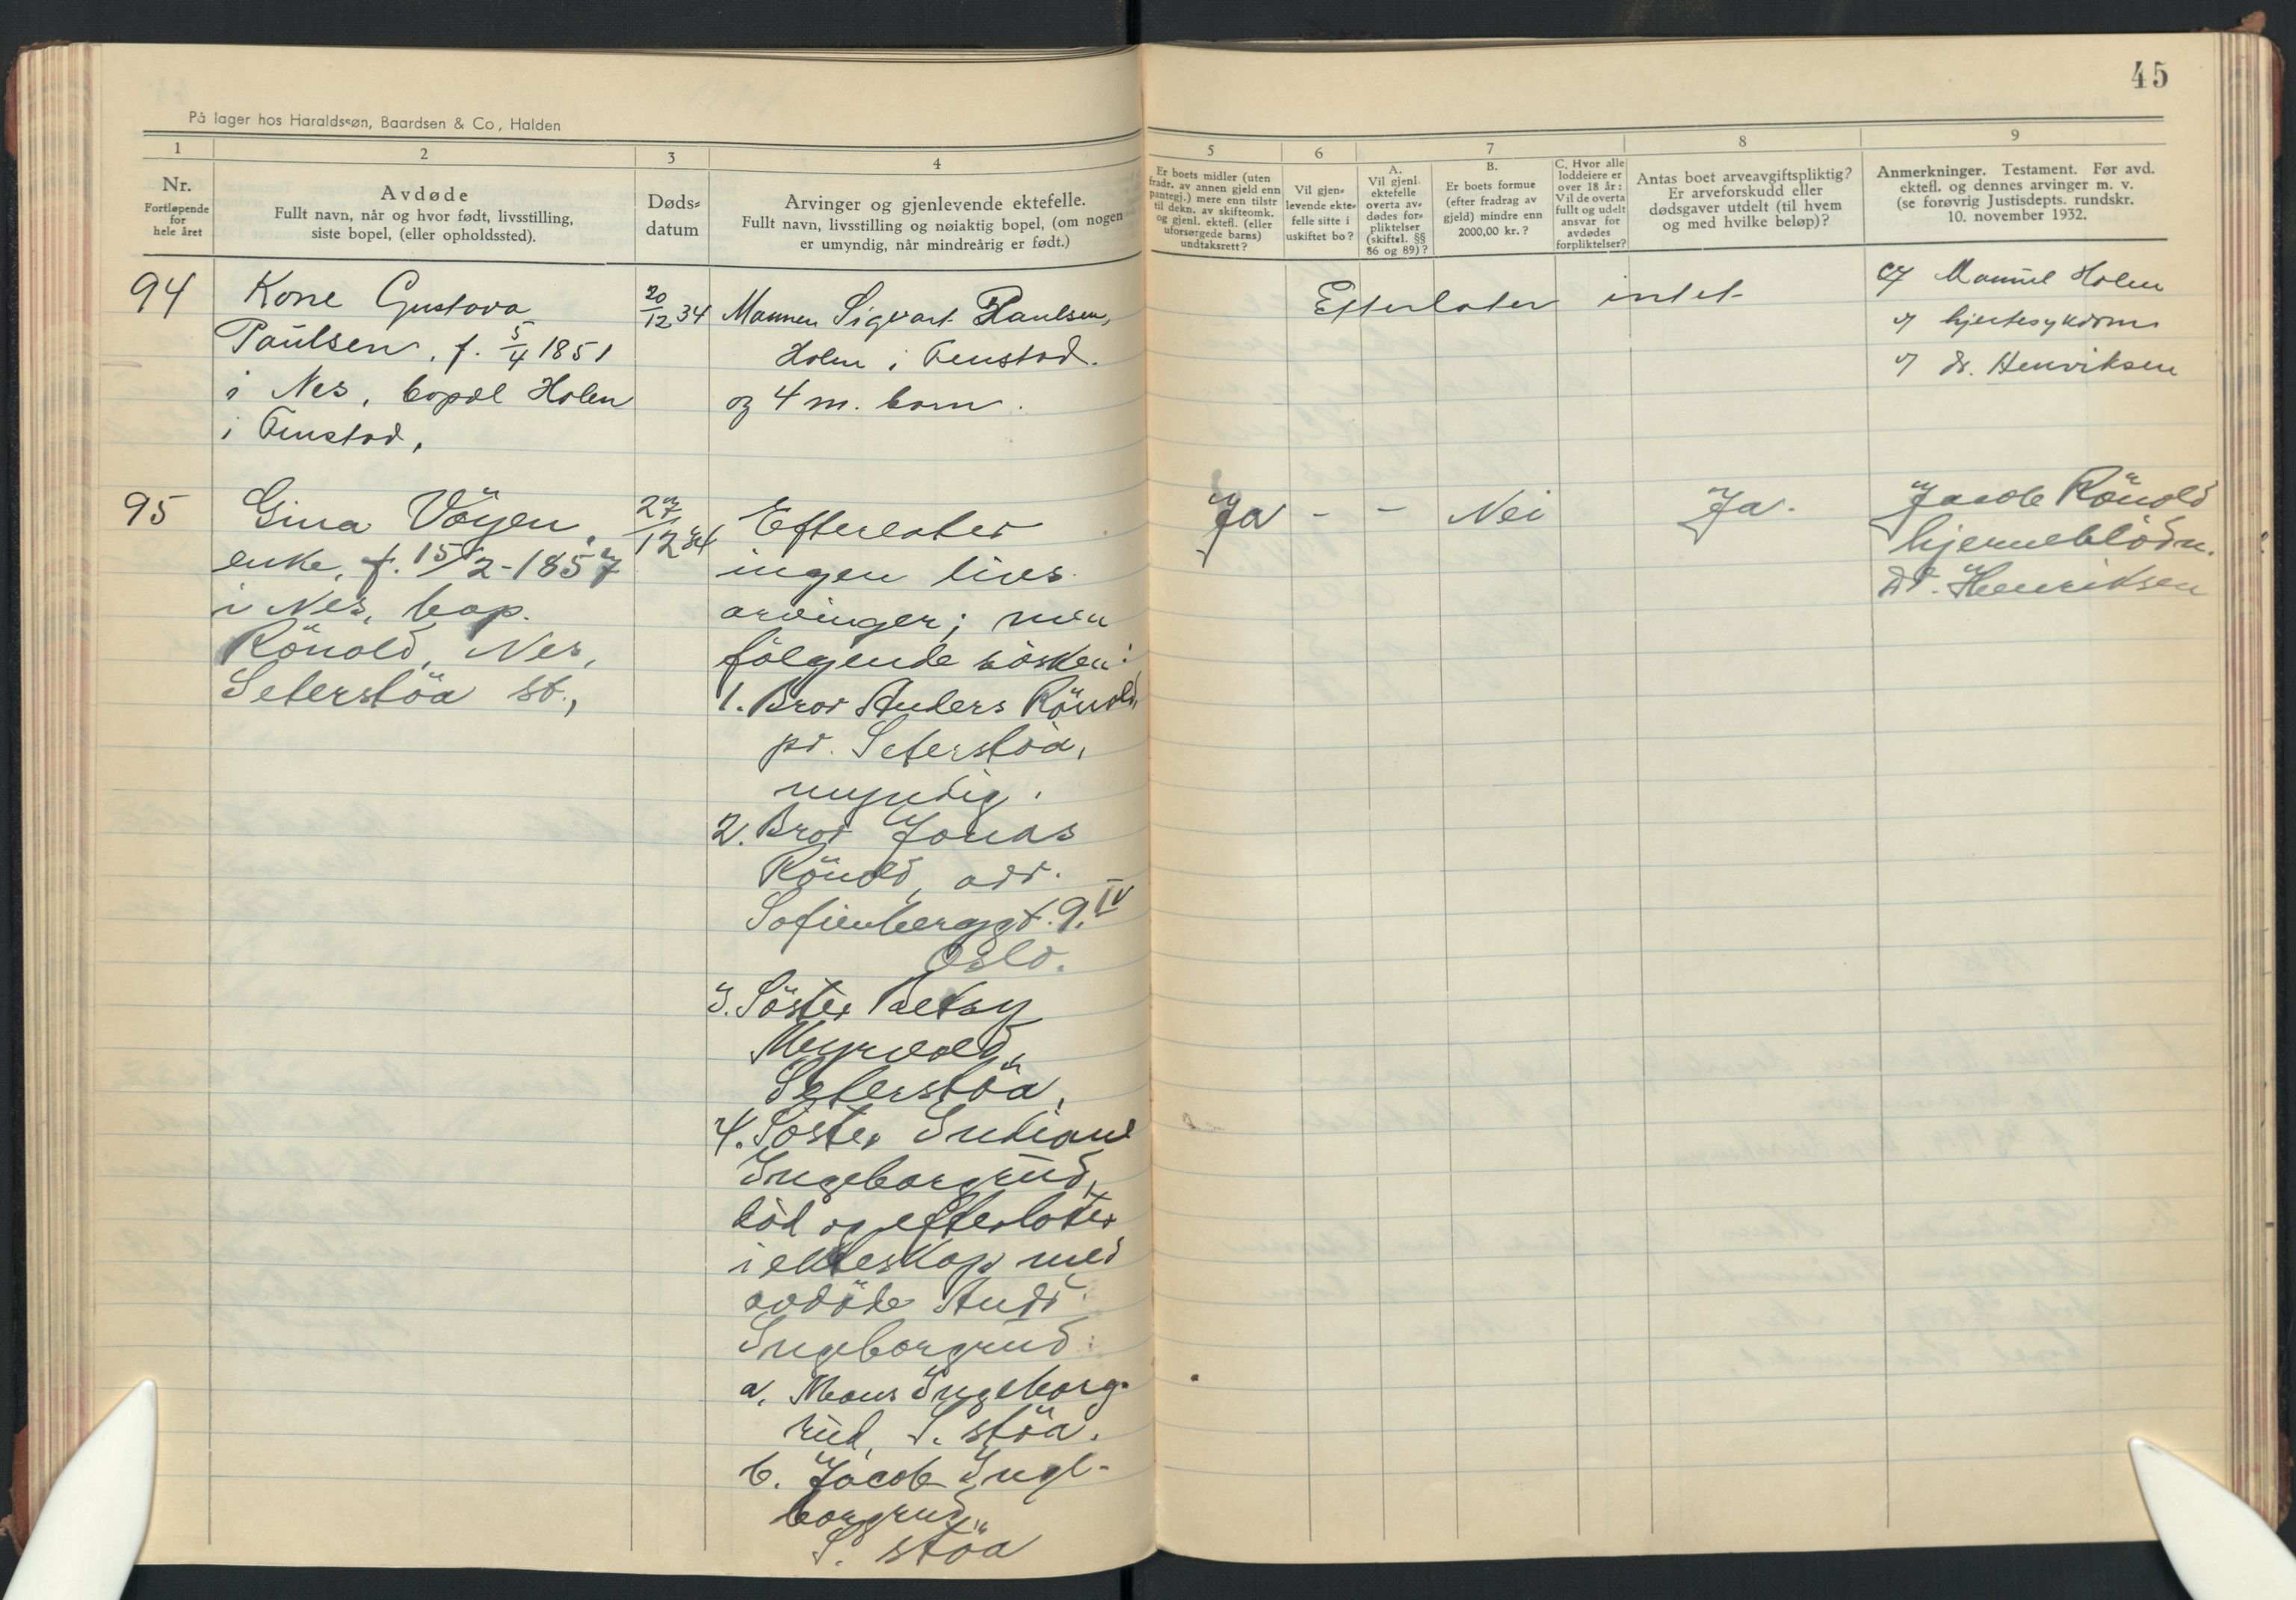 45
På lager hos Haraldssøn, Baardsen & Co, Halden
1
2
3
4
5
6
7
8
9
Nr.
Fortløpende
for
hele året
Avdøde
Fullt navn, når og hvor født, livsstilling,
siste bopel, (eller opholdssted).
Døds-
datum
Arvinger og gjenlevende ektefelle.
Fullt navn, livsstilling og nøiaktig bopel, (om nogen
er umyndig, når mindreårig er født.)
Er boets midler (uten
fradr. av annen gjeld enn
pantegj.) mere enn tilstr
til dekn. av skifteomk.
og gjenl. ektefl. (eller
uforsørgede barns)
undtaksrett?
Vil gjen-
levende ekte-
felle sitte i
uskiftet bo?
A.
Vil gjenl.
ektefelle
overta av-
dødes for-
pliktelser
(skiftel. §§
86 og 89)?
B.
Er boets formue
(efter fradrag av
gjeld) mindre enn
2000,00 kr.?
C. Hvor alle
loddeiere er
over 18 år:
Vil de overta
fullt og udelt
ansvar for
avdødes
forpliktelser?
Antas boet arveavgiftspliktig?
Er arveforskudd eller
dødsgaver utdelt (til hvem
og med hvilke beløp)?
Anmerkninger. Testament. Før avd.
ektefl. og dennes arvinger m. v.
(se forøvrig Justisdepts. rundskr.
10. november 1932.
94
Kone Gustava
Paulsen, f. 5/4 1851
i Nes, bopel Holen
i Fenstad,
20/12 34
Mannen Sigvart Paulsen,
Holen i Fenstad.
og 4 m. barn.
Efterlater intet
af Manuel Holen
hjertesykdom
dr. Henriksen
95
Gina Vöyen,
enke, f. 15/2-1857
i Nes, bop.
Rönold, Nes,
Seterstöa st.,
27/12 34
Efterlater
ingen livs
arvinger; men
fölgende sösken:
1. Bror Anders Rönold,
pr. Seterstöa,
myndig.
2. Bror Jonas
Rönold, adr.
Sofienberggt. 9. IV
Oslo.
3. Söster
Myrvold,
Seterstöa,
4. Söster
Ingeborgrud,
död og efterlater
i ekteskap med
avdöde Andr.
Ingeborgrud:
a. Mons Ingeborg-
rud, S. stöa.
b. Jacob Inge-
borgrud,
S. stöa
Ja - - Nei
Ja.
Jacob Rönold
hjerneblödn.
Dr. Henriksen